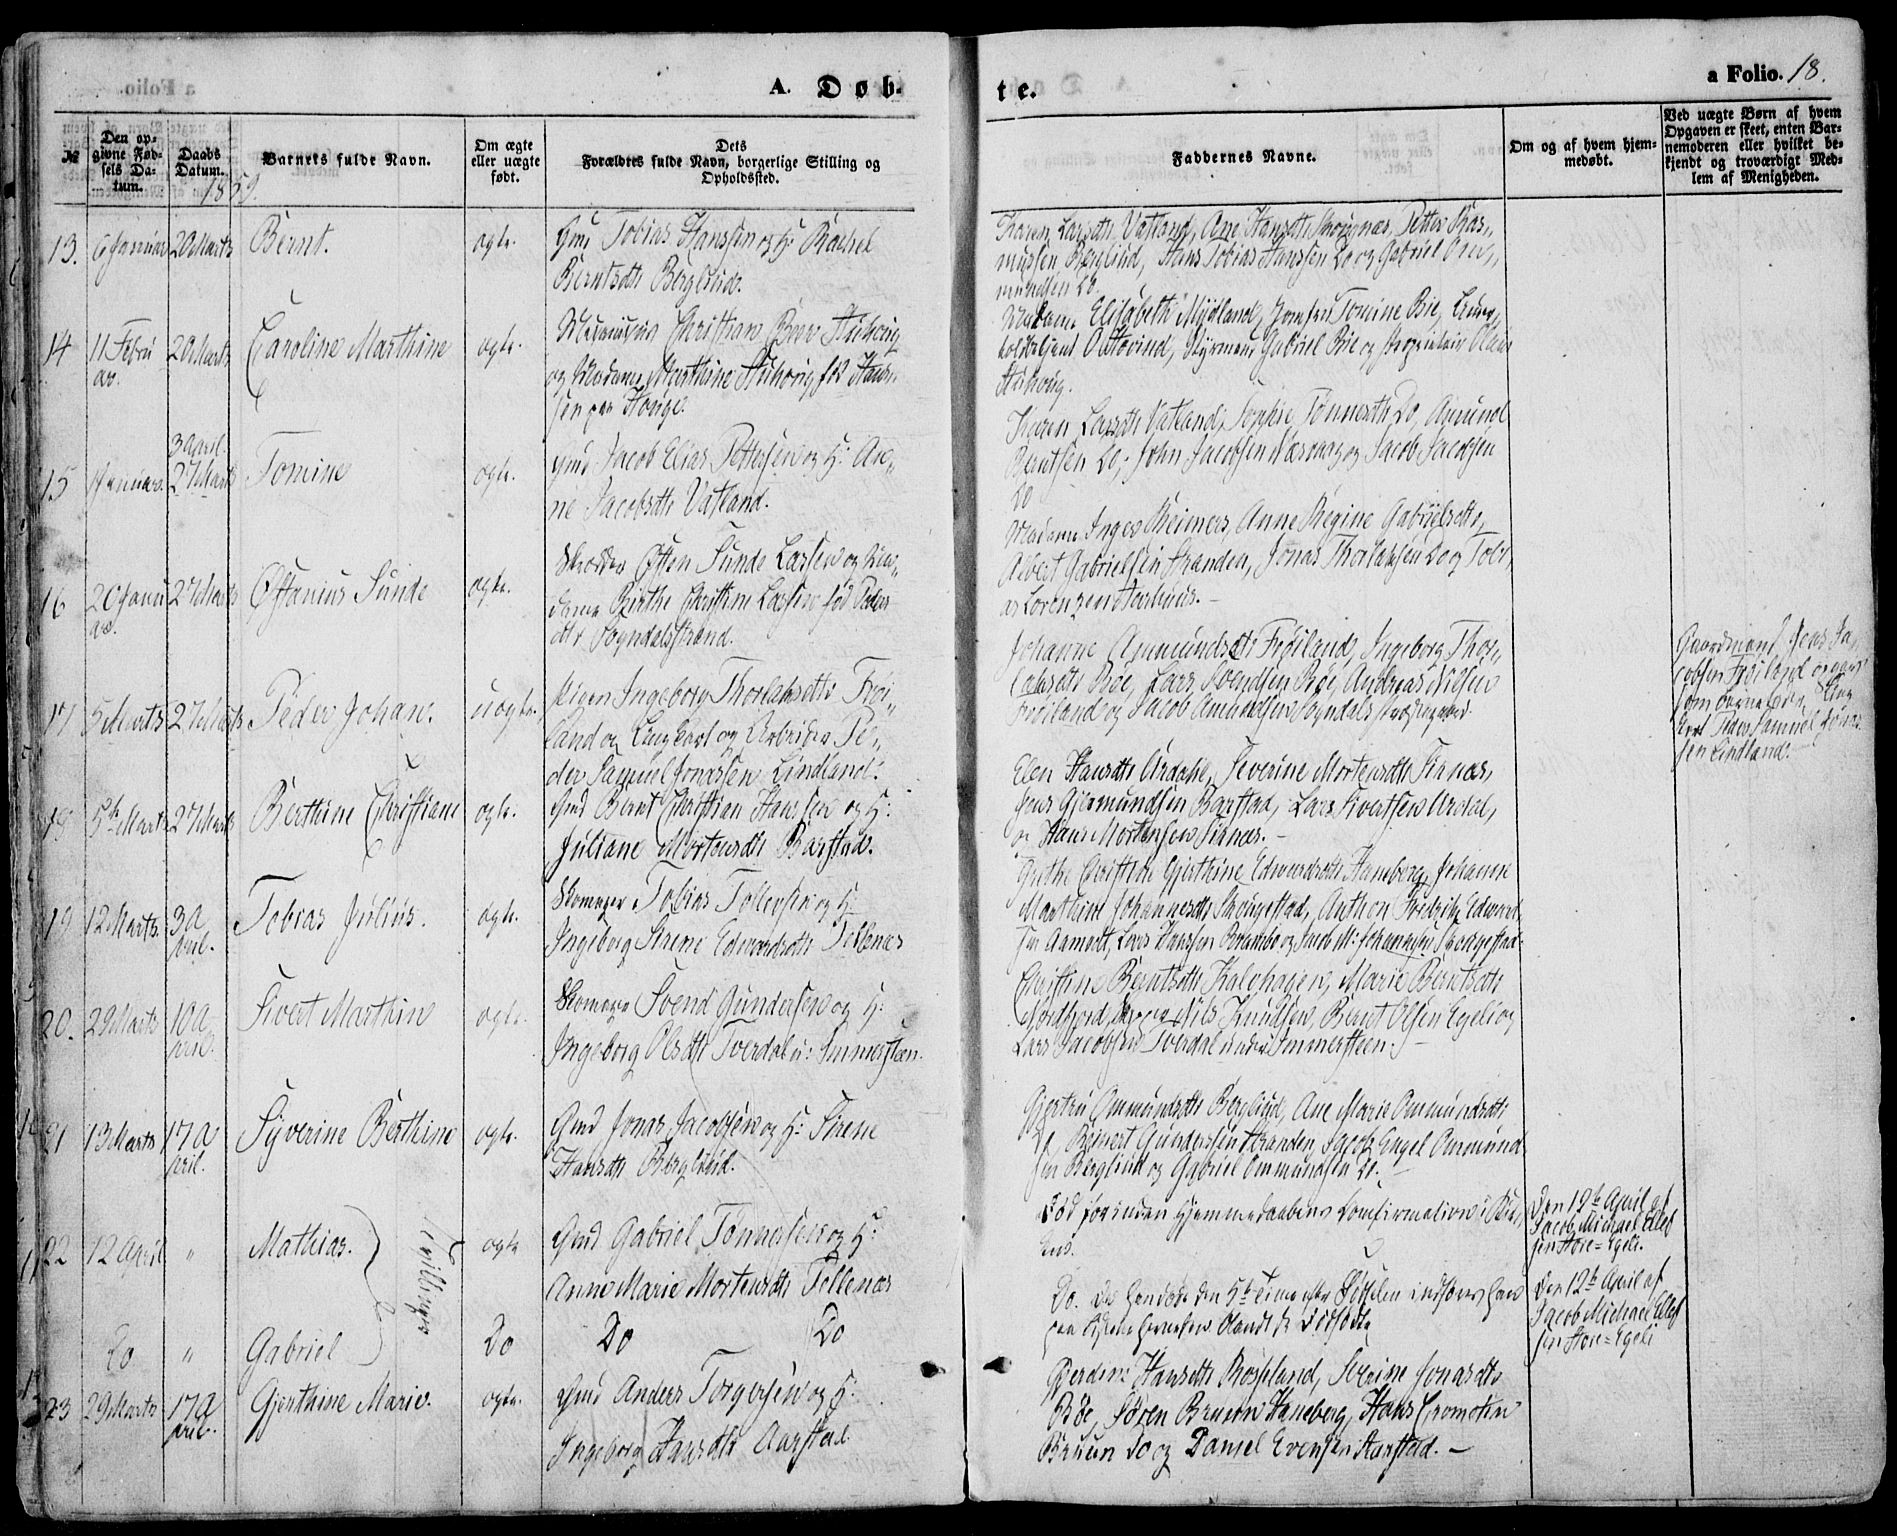 A. Døb-
te.
a Folio. 18.
№
Den op-
givne Fød-
sels Da-
tum.
Daabs
Datum.
1859.
Barnets fulde Navn.
Om ægte
eller uægte
født.
Dets
Forældres fulde Navn, borgerlige Stilling og
Opholdssted.
Faddernes Navne.
Om og af hvem hjem-
medøbt.
Ved uægte Børn af hvem
Opgaven er skeet, enten Bar-
nemoderen eller hvilket be-
kjendt og troværdigt Med-
lem af Menigheden.
13. 6 Januar 20 Marts Bernt. ægte. Gmd Tobias Hanssen og H: Rachel
Berntsdtr Berglind.
Karen Larsdtr Vatland, Ane Hansdtr Petter Ras-
mussen Berglind, Hans Tobias Hanssen Do og Gabriel Om-
mundsen Do.
14 11 Febru
ar. 20 Marts Caroline Marthine ægte. Christian Stuhoug
og Madame Marthine Stuhoug fød Hans-
sen paa Houge.
Madame Elisabeth Mydland, Jomfru Tomine Bie,
Styrmand Gabriel Bie og Olaus
Stuhoug.
15 Januar. 3 April.
27 Marts Tomine ægte. Gmd Jacob Elias Pettersen og H: An-
ne Jacobsdtr Vatland.
Karen Larsdtr Vatland, Sophie Tønnesdtr Do, Amund
Berntsen Do, John Jacobsen og Jacob Jacobsen
Do
16 20 Janu
ar. 27 Marts Østanius Sunde ægte. Østen Sunde Larsen og Ma-
dame Birthe Christine Larsen fød Peders-
dtr Sogndalsstrand.
Madame Inger Reimers, Anne Regine Gabrielsdtr,
Albert Gabrielsen Stranden, Jonas Thorlaksen Do og Tobi-
as Lorenzen Aarhuus.
17 5 Marts 27 Marts Peder Johan. uægte. Pigen Ingeborg Thorlaksdtr Frøi-
land og Ungkarl og Arbeider Pe-
der Samuel Jonassen Lindland.
Johanne Ammundsdtr Frøiland, Ingeborg Thor-
laksdtr Bøe, Lars Svendsen Bøe, Andreas Nilsen
Frøiland og Jacob Amundsen Sogndals
Gaardmand Jens Ja-
cobsen Frøiland
som Barnefader Ung-
karl Peder Samuel Jonas-
sen Lindland.
18 5te Marts 27 Marts Berthine Christiane ægte. Gmd Bernt Christian Hanssen og H:
Juliane Mortensdtr Barstad.
Elen Hansdtr Aardahl, Severine Mortensdtr Titnæs,
Jens Gjermundsen Barstad, Lars Sivertsen Ardal,
og Hans Mortensen Titnæs.
19 12 Marts. 3 A
pril. Tobias Julius. ægte. Skomager Tobias Tollevsen og H:
Ingeborg Sirene Edwardsdtr Tellenæs
Gjerthine Edwardsdtr Haneberg, Johanne
Marthine Johannesdtr Skougestad, Anthon Fredrik Edward-
sen Aamodt, Lars Hanssen og Jacob M: Johannessen Skougestad.
20. 29 Marts 10 A
pril. Sivert Marthin ægte. Skomager Svend Gundersen og H:
Ingeborg Olsdtr Tverdal u: Immersteen.
Christine Berntsdtr Kalvhagen, Marie Berntsdtr
Nordfjord, Nils Knudsen, Bernt Olsen Egeli og
Lars Jacobsen Tverdal under Immersteen.
21 13 Marts 17 A
pril. Syverine Berthine ægte. Gmd Jonas Jacobsen og H: Sirene
Hansdtr Berglind.
Gjertru Ommundsdtr Berglind, Ane Marie Ommundsdtr
Do, Reinert Gundersen Stranden, Jacob Engel Ommund-
sen Berglind og Gabriel Ommundsen Do.
22 12 April " Mathias. Tvillinger ægte Gmd Gabriel Tønnessen og H:
Anne Marie Mortensdtr Tellenæs
Død forinden Hjemmedaabens Confirmation i Kir-
ken.
Den 12te April af
Jacob Michael Ellef-
sen Store-Egeli.
Do " Gabriel Do Do Do
Do. den 5te Time efter Fødselen indføres han
blandt de Dødfødte
Den 12te April af
Jacob Michael Ellef-
sen Store-Egeli
23 29 Marts 17 A
pril. Gjerthine Marie. ægte. Gmd Anders Torgersen og H:
Ingeborg Hansdtr Aarstad.
Hansdtr Rosseland, Severine Jonasdtr
Bøe, Søren Bruun Haneberg, Hans
Bruun Do og Daniel Evensen Aarstad.